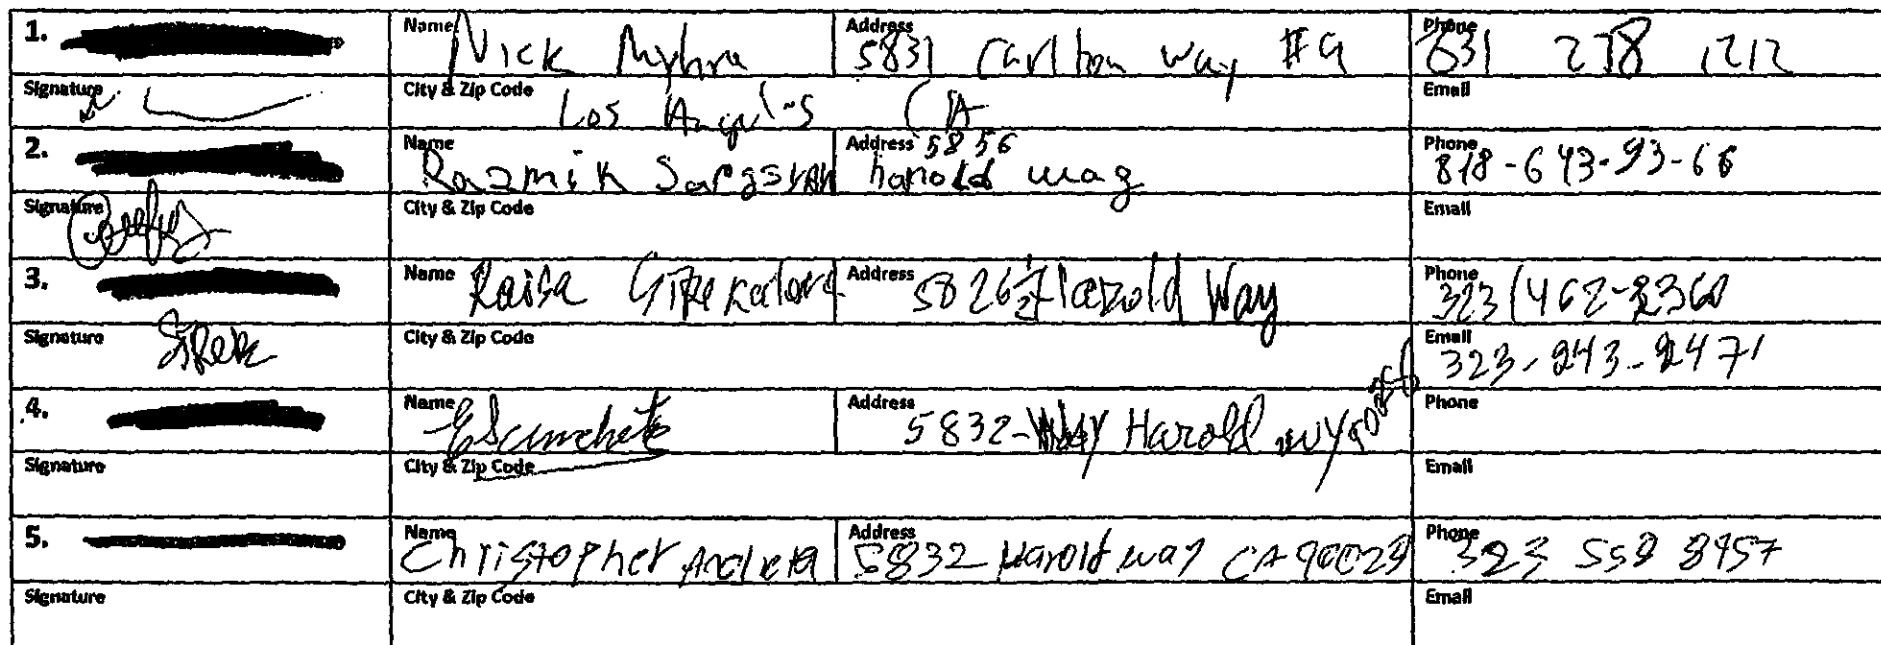 1. Name Nick Myhra Address 5831 Carlton Way #9 Phone 831 278 1212
Signature City & Zip Code Los Angeles CA Email
2. Name Razmik Sargsyan Address 5856 harold way Phone 818-643-93-66
Signature City & Zip Code Email
3. Name Raisa Address 5826 1/2 Harold Way Phone 323 462-2360
Signature City & Zip Code Email 323-243-2471
4. Name Address 5832 Harold wy Phone
Signature City & Zip Code Email
5. Name Christopher Address 5832 Harold way CA 90028 Phone 323 559 8957
Signature City & Zip Code Email